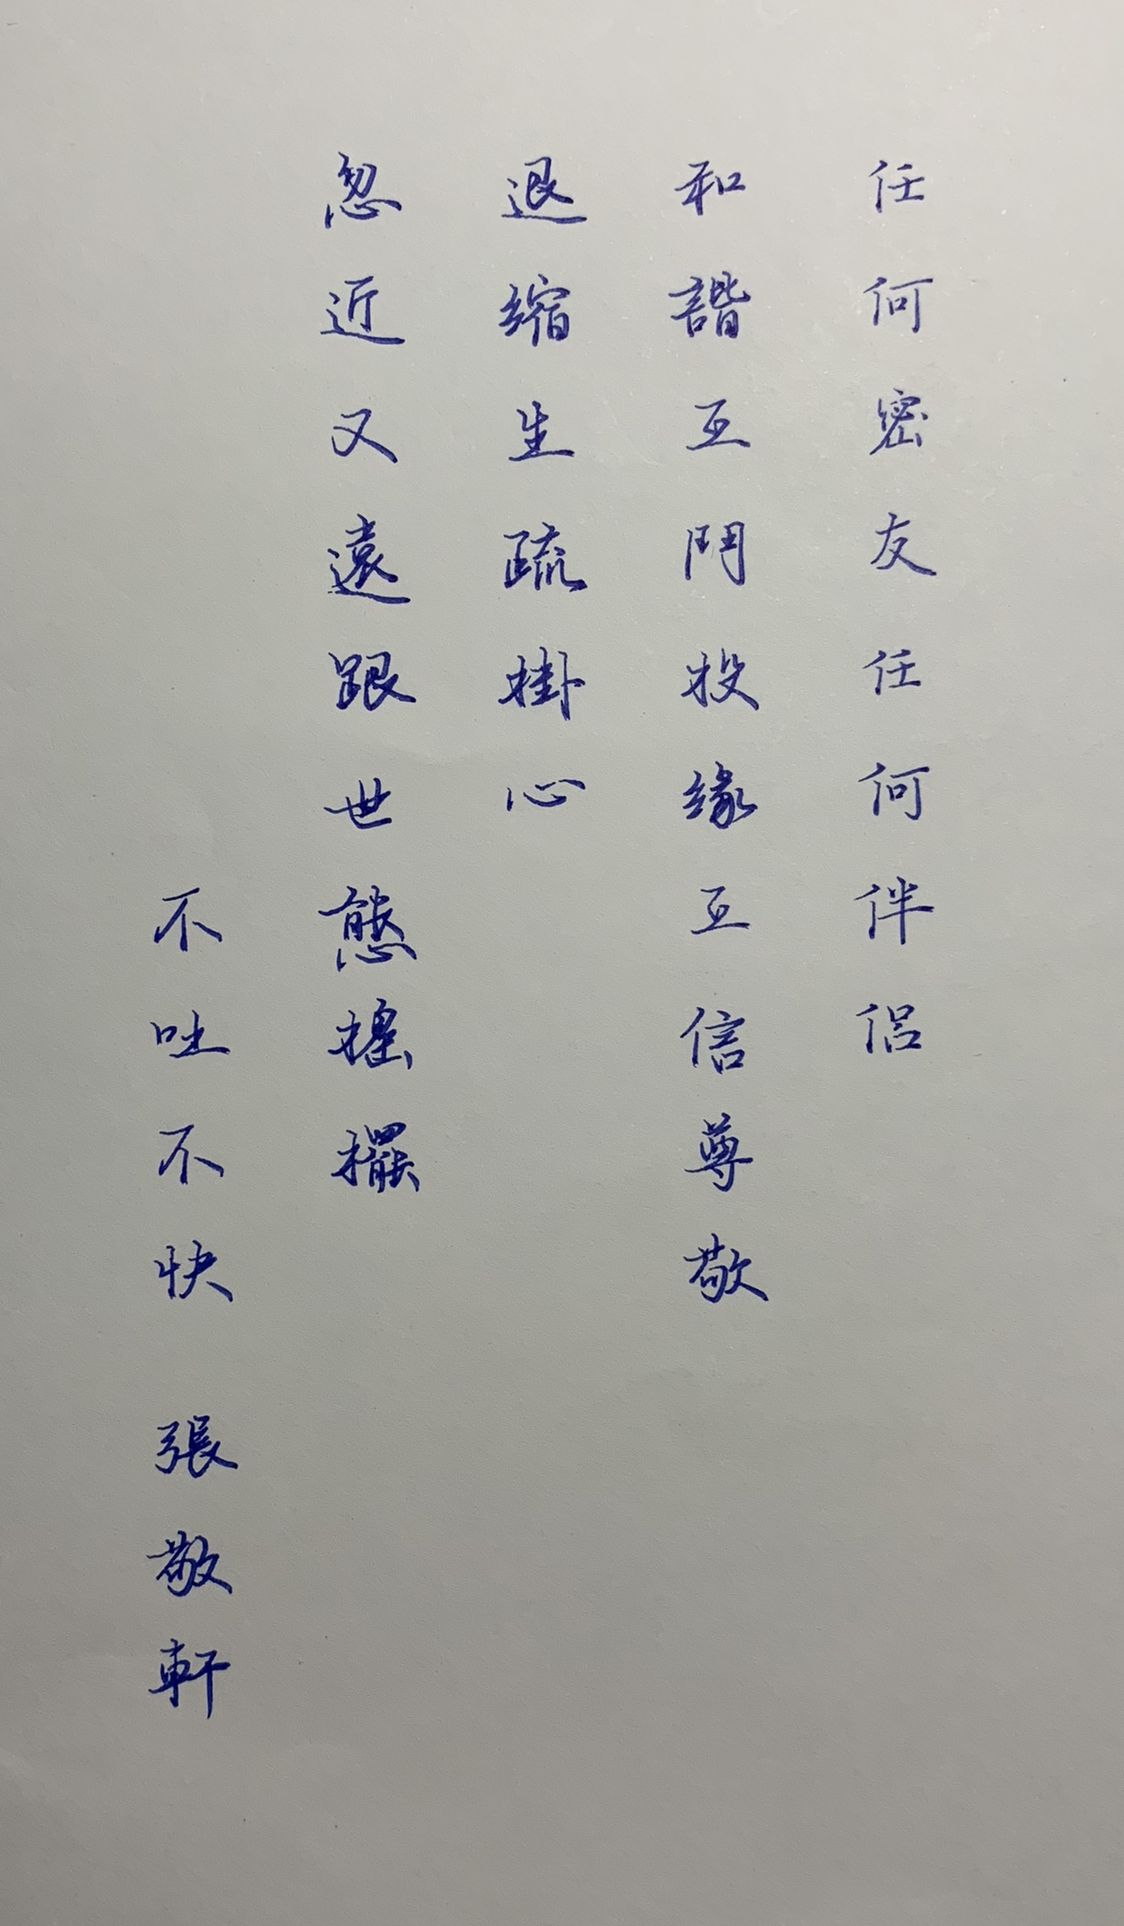 任何密友任何伴侣
和諧互鬥投緣互信尊敬
退縮生疏掛心
忽近又遠跟世態搖擺
不吐不快 張敬軒